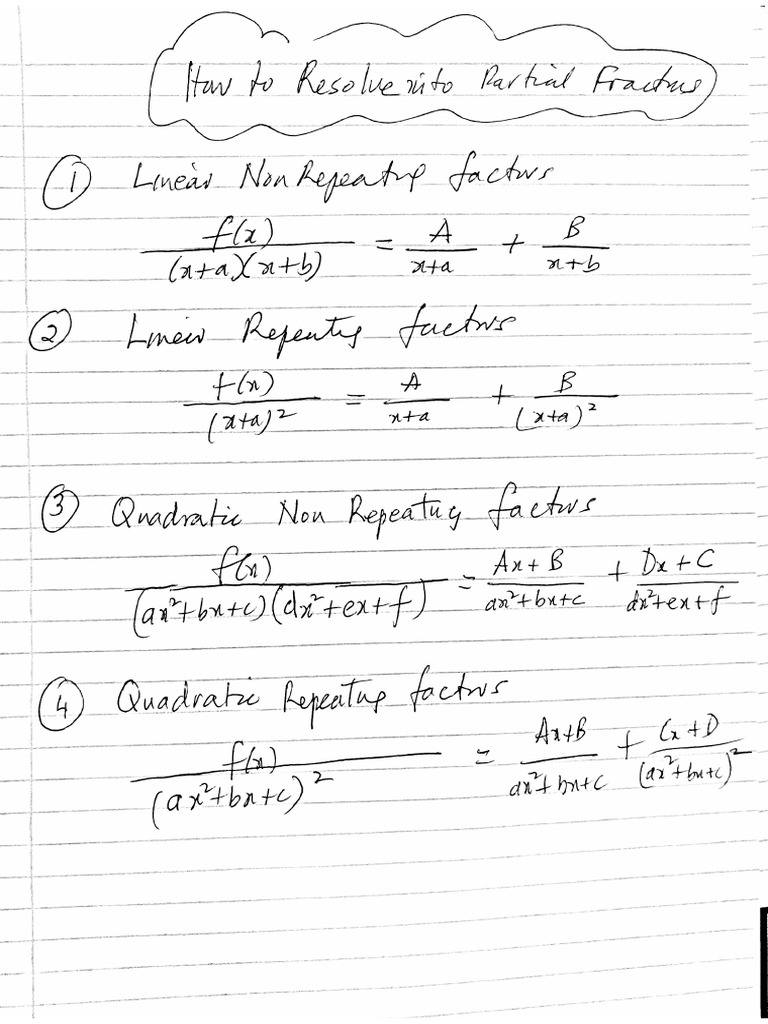 How to Resolve into Partial Fractions
① Linear Non Repeating factors
f(x) / (x+a)(x+b) = A / x+a + B / x+b
② Linear Repeating factors
f(x) / (x+a)² = A / x+a + B / (x+a)²
③ Quadratic Non Repeating factors
f(x) / (ax²+bx+c)(dx²+ex+f) = Ax+B / ax²+bx+c + Dx+C / dx²+ex+f
④ Quadratic Repeating factors
f(x) / (ax²+bx+c)² = Ax+B / ax²+bx+c + Cx+D / (ax²+bx+c)²